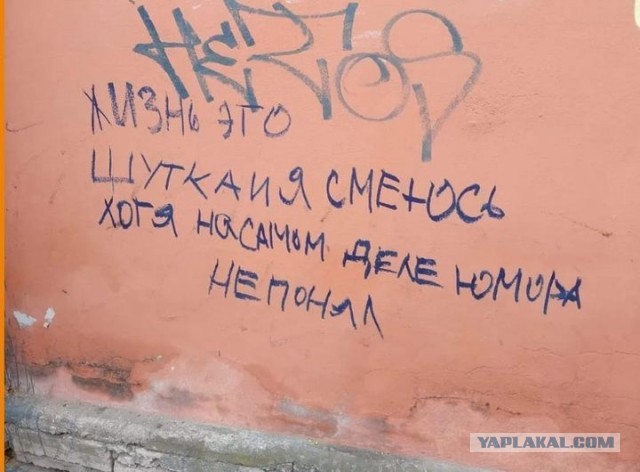 ЖИЗНЬ ЭТО
ШУТКА И Я СМЕЮСЬ
ХОТЯ НА САМОМ ДЕЛЕ ЮМОРА
НЕ ПОНЯЛ
YAPLAKAL.COM